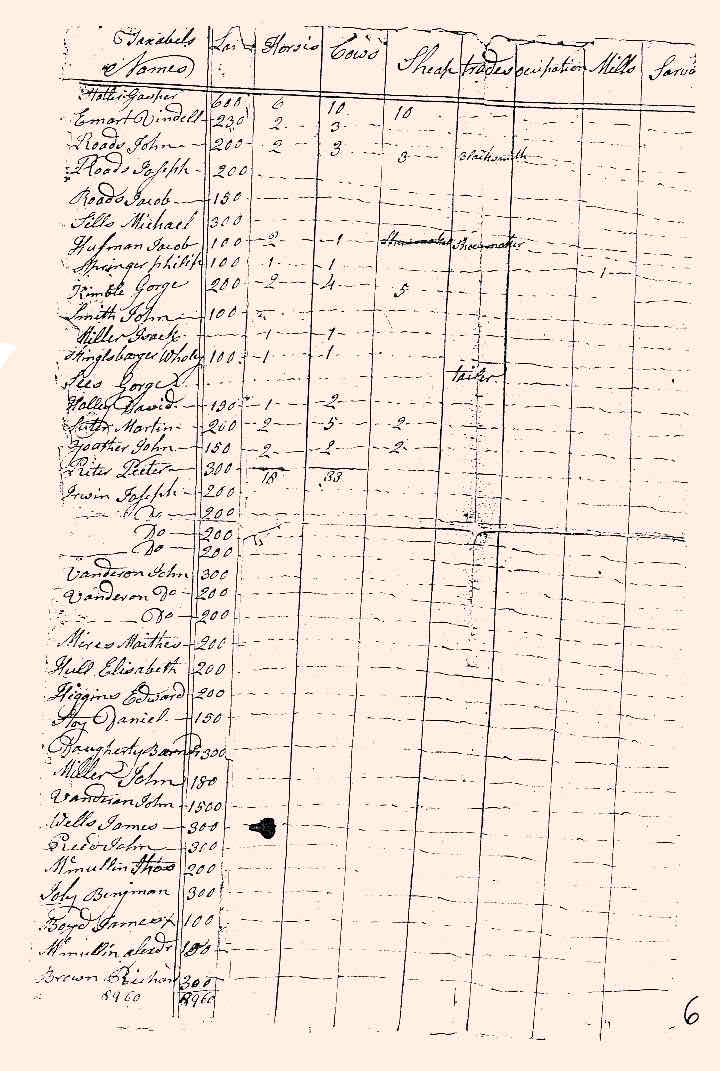 Taxabels Names Lan Horsis Cows Sheap trades ocupation Mills Sarva
Gasper 600 6 10 10
Emart Vindell 230 2 3
Roads John 200 2 3 3 Blacksmith
Roads Joseph 200
Roads Jacob 150
Sills Michael 300
Hufman Jacob 100 2 1 Shoemaker Shoemaker
Springer philip 100 1 1 1
Kimble Gorge 200 2 4 5
Smith John 100
Hiller Isack 1 1
100 1 1
Sees Gorge tailer
Holley David 130 1 2
Suter Martin 200 2 5 2
Yoather John 150 2 2 2
Riter Peeter 300 18 33
Irwin Joseph 200
Do 200
Do 200
Do 200
Vanderon John 300
Vanderon Do 200
Do 200
Mires Maithes 200
Hull Elisabeth 200
Higgins Edward 200
Stoy Daniel 150
Daugherty Barnd 300
Miller John 180
Vanderan John 1500
Wells James 300
Reed John 300
Mcmullin Thos 200
Joly Binjman 300
Boyd James 100
Mcmullin
Brown Richar 300
8960 8960
6